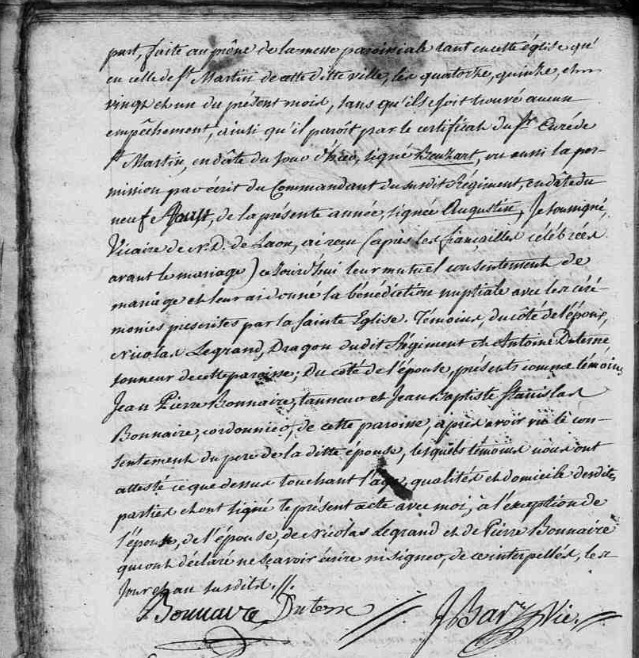 part, faite au prône de la messe paroissiale tant en cette église qu'
en celle de St. Martin de cette ditte ville, les quatorze, quinze, et
vingt et un du présent mois, sans qu'il se soit trouvé aucun
empêchement, ainsi qu'il paroît par le certificat du Sr. Curé de
St. Martin, en date du jour d'hier, signé vu aussi la per-
mission par écrit du Commandant du susdit Régiment, en date du
neuf de la présente année, signée Augustin, Je soussigné,
Vicaire de N.D. de Laon, ai reçu (après les fiançailles célébrées
avant le mariage) cejourd'hui leur mutuel consentement de
mariage et leur ai donné la bénédiction nuptiale avec les céré-
monies prescrites par la Sainte Eglise. Témoins, du côté de l'époux,
Nicolas Legrand, Dragon dudit Régiment et Antoine Duterne
tonneur de cette paroisse; Du côté de l'épouse, présents comme témoins
Jean Pierre Bonnaire, tanneur et Jean Baptiste Stanislas
Bonnaire, cordonnier, de cette paroisse, après avoir vu le con-
sentement du pere de la ditte épouse, lesquels témoins nous ont
attesté ce que dessus touchant l'age, qualités et domicile desdites
parties et ont signé le présent acte avec moi, à l'exception de
l'époux, de l'épouse, de Nicolas Legrand et de Pierre Bonnaire
qui ont déclaré ne sçavoir écrire ni signer, de ce interpellés, les
Jour et an susdits.//.
Bonnaire Duterne // Vic.